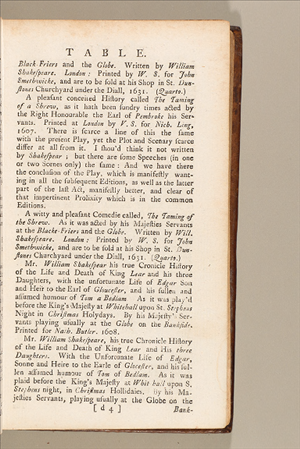 TABLE.
Black-Friers and the Globe. Written by William
Shakespeare. London: Printed by W. S. for John
Smethwicke, and are to be sold at his Shop in St. Dun-
stones Churchyard under the Diall, 1631. (Quarto.)
A pleasant conceited History called The Taming
of a Shrew, as it hath been sundry times acted by
the Right Honourable the Earl of Pembroke his Ser-
vants. Printed at London by V. S. for Nich. Ling,
1607. There is scarce a line of this the same
with the present Play, yet the Plot and Scenary scarce
differ at all from it. I shou'd think it not written
by Shakespear; but there are some Speeches (in one
or two Scenes only) the same: And we have there
the conclusion of the Play, which is manifestly want-
ing in all the subsequent Editions, as well as the latter
part of the last Act, manifestly better, and clear of
that impertinent Prolixity which is in the common
Editions.
A witty and pleasant Comedie called, The Taming of
the Shrew. As it was acted by his Majesties Servants
at the Blacke-Friers and the Globe. Written by Will.
Shakespeare. London: Printed by W. S. for John
Smethwicke, and are to be sold at his Shop in St. Dun-
stones Churchyard under the Diall, 1631. (Quarto.)
Mr. William Shakespear his true Cronicle History
of the Life and Death of King Lear and his three
Daughters, with the unfortunate Life of Edgar Son
and Heir to the Earl of Gloucester, and his sullen and
assumed humour of Tom a Bedlam As it was play'd
before the King's Majesty at Whitehall upon St. Stephens
Night in Christmas Holydays. By his Majesty's Ser-
vants playing usually at the Globe on the Bankside.
Printed for Nath. Butter. 1608.
Mr. William Shakespeare, his true Chronicle History
of the Life and Death of King Lear and His three
Daughters. With the Unfortunate Life of Edgar,
Sonne and Heire to the Earle of Glocester, and his sul-
len assumed humour of Tom of Bedlam. As it was
plaid before the King's Majesty at Whit hall upon S.
Stephens night, in Christmas Hollidaies. By his Ma-
jesties Servants, playing usually at the Globe on the
[ d 4 ]
Bank-